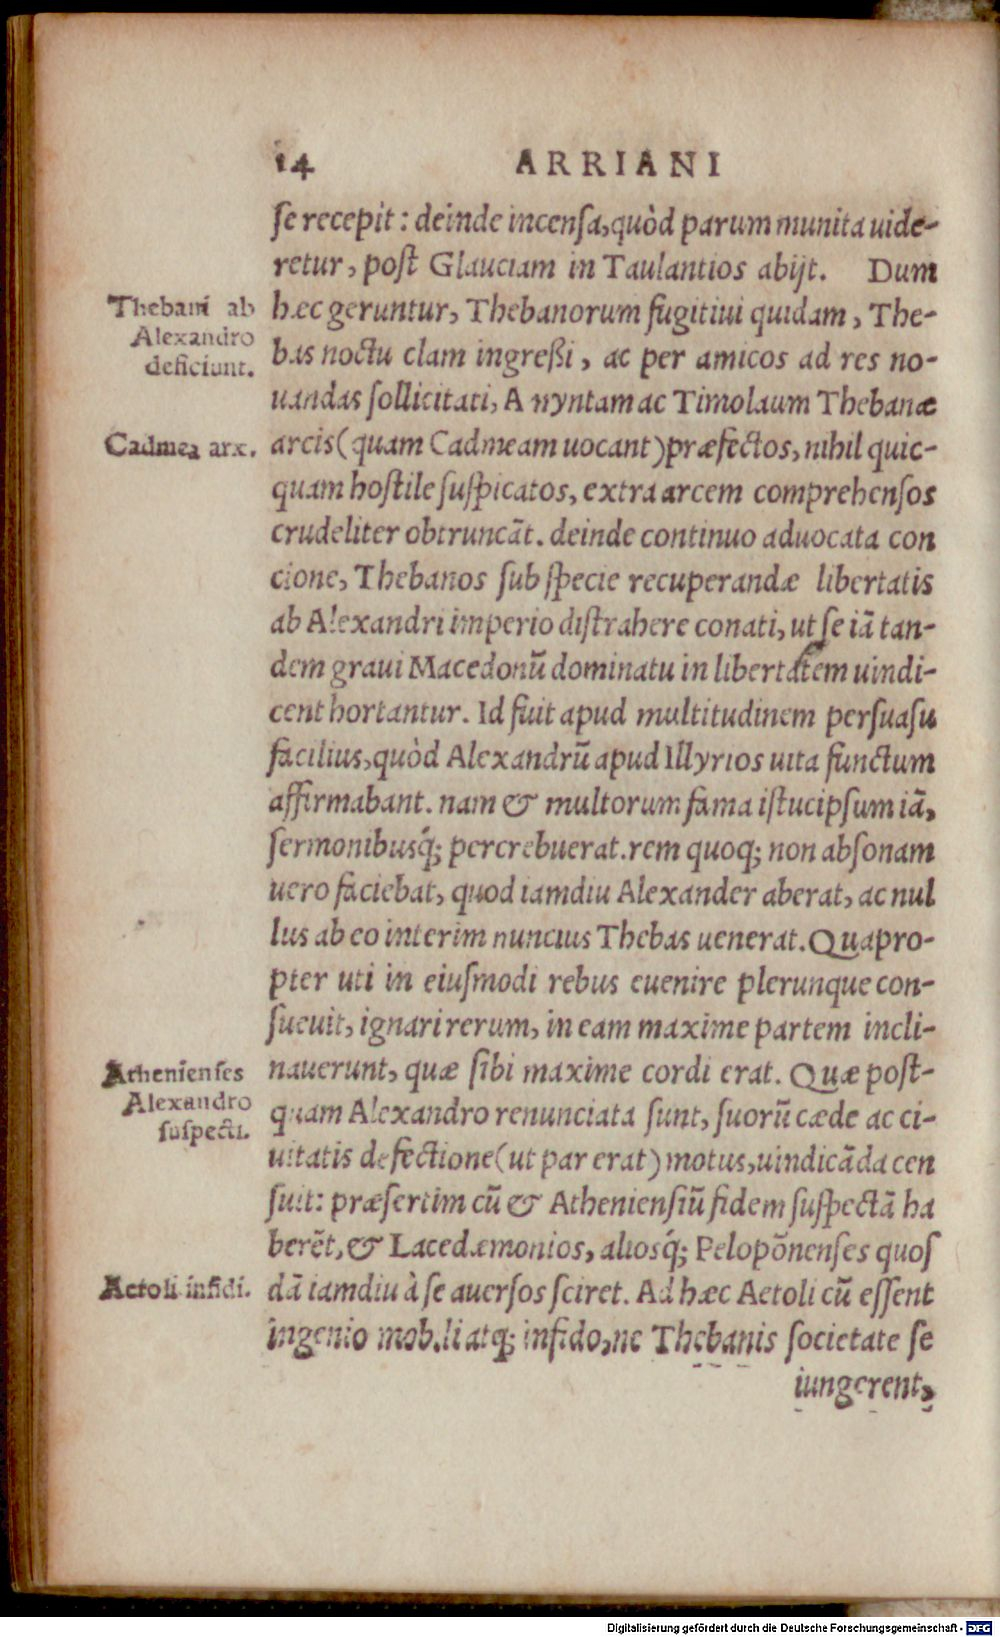 14 ARRIANI
se recepit: deinde incensa, quòd parum munita uide-
retur, post Glauciam in Taulantios abijt. Dum
Thebani ab
Alexandro
deficiunt.
hæc geruntur, Thebanorum fugitiui quidam, The-
bas noctu clam ingreßi, ac per amicos ad res no-
uandas sollicitati, Amyntam ac Timolaum Thebanæ
Cadmea arx.
arcis (quam Cadmeam uocant) præfectos, nihil quic-
quam hostile suspicatos, extra arcem comprehensos
crudeliter obtruncãt. deinde continuo aduocata con
cione, Thebanos sub specie recuperandæ libertatis
ab Alexandri imperio distrahere conati, ut se iã tan-
dem graui Macedonũ dominatu in libertatem uindi-
cent hortantur. Id fuit apud multitudinem persuasu
facilius, quòd Alexandrũ apud Illyrios uita functum
affirmabant. nam & multorum fama istuc ipsum iã,
sermonibusq́; percrebuerat. rem quoq; non absonam
uero faciebat, quod iamdiu Alexander aberat, ac nul
lus ab eo interim nuncius Thebas uenerat. Quapro-
pter uti in eiusmodi rebus euenire plerunque con-
sueuit, ignari rerum, in eam maxime partem incli-
Athenienses
Alexandro
suspecti.
nauerunt, quæ sibi maxime cordi erat. Quæ post-
quam Alexandro renunciata sunt, suorũ cæde ac ci-
uitatis defectione (ut par erat) motus, uindicãda cen
suit: præsertim cũ & Atheniensiũ fidem suspectã ha
berẽt, & Lacedæmonios, aliosq́; Pelopõnenses quos
Aetoli infidi.
dã iamdiu à se auersos sciret. Ad hæc Aetoli cũ essent
ingenio mobili atq; infido, ne Thebanis societate se
iungerent,
Digitalisierung gefördert durch die Deutsche Forschungsgemeinschaft - DFG